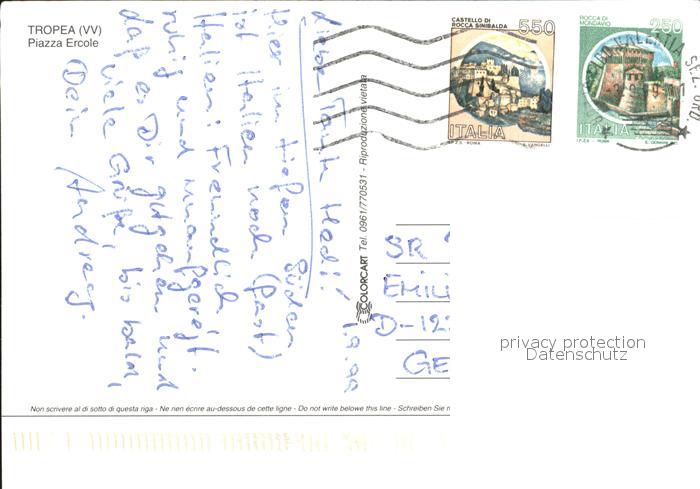 TROPEA (VV)
Piazza Ercole
CASTELLO DI
ROCCA SINIBALDA
550
ITALIA
I.P.Z.S. - ROMA
E. VANGELLI
ROCCA DI
MONDAVIO
250
ITALIA
I.P.Z.S. - ROMA
1.9.99
Liebe Tante Hedi!
Hier im tiefen Süden
ist Italien noch (fast)
Italien: Freundlich,
ruhig und unaufgeregt.
daß es Dir gut gehen und
viele Grüße, bis bald,
Dein
Andreas.
COLORCART Tel. 0961/770531 - Riproduzione vietata
SR
EMILI
D-12
GE
privacy protection
Datenschutz
Non scrivere al di sotto di questa riga - Ne rien écrire au-dessous de cette ligne - Do not write belowe this line - Schreiben Sie n